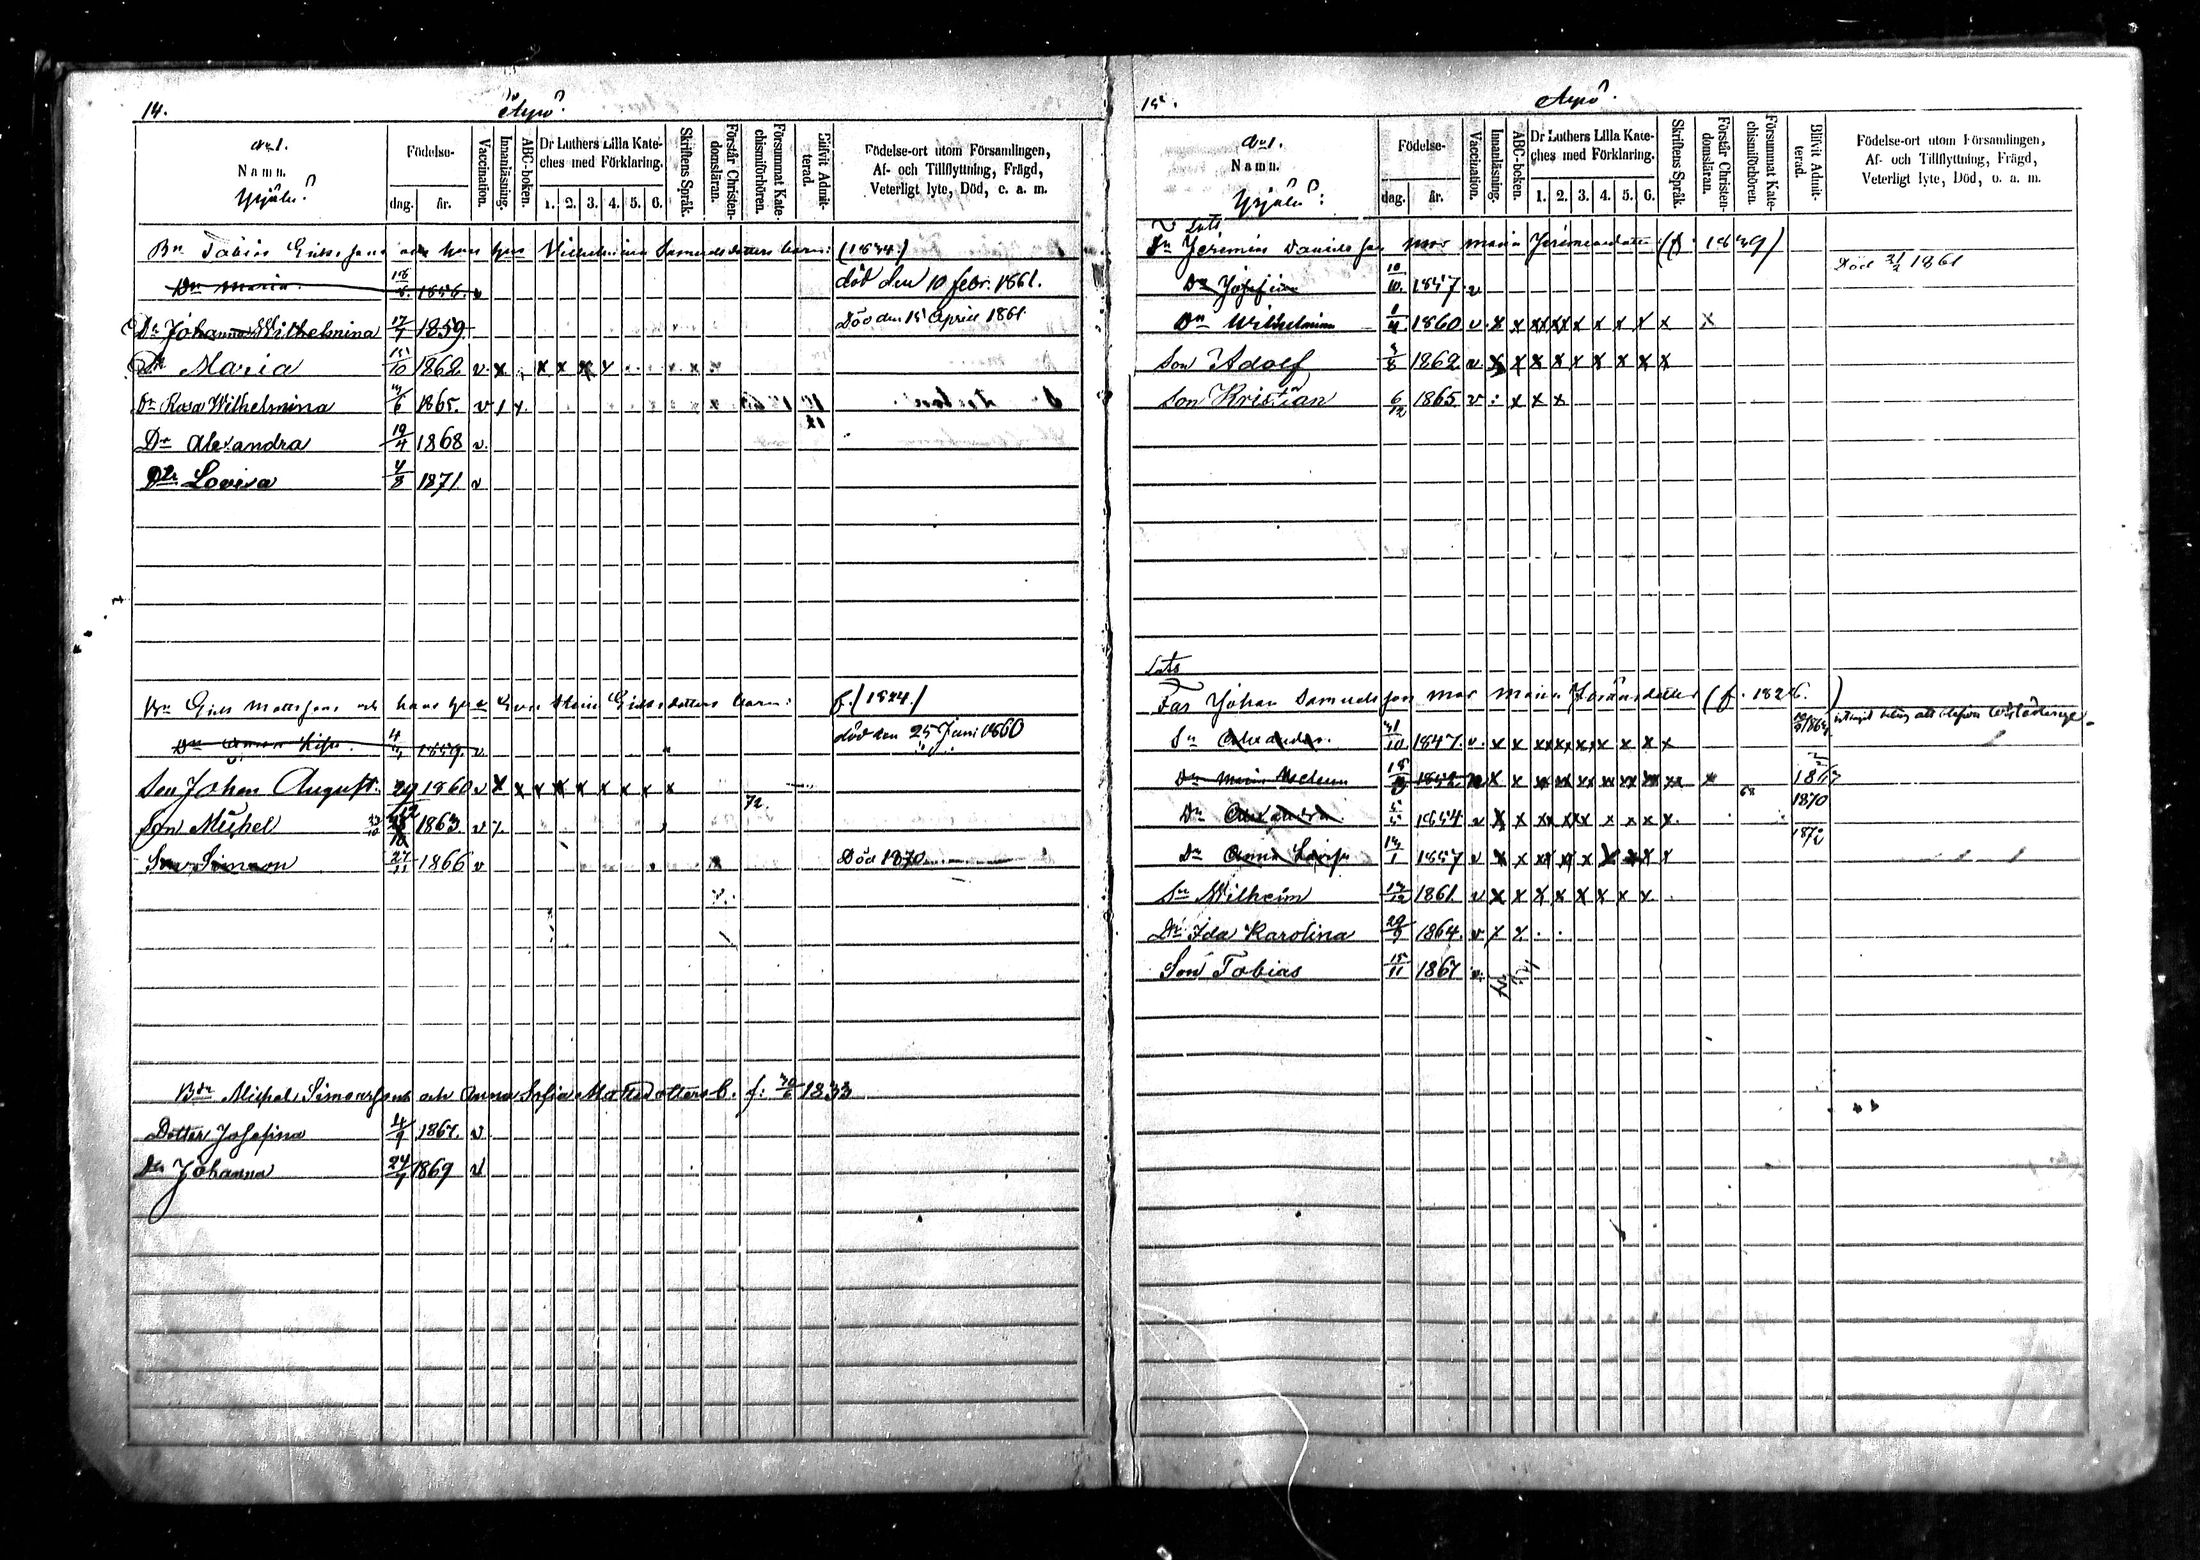 14.
Aspö.
No 1.
Namn.
Yrjälä.
Födelse-
dag. år.
Vaccination.
Innanläsning.
ABC-boken.
Dr Luthers Lilla Kate-
ches med Förklaring.
1. 2. 3. 4. 5. 6.
Skriftens Språk.
Förstår Christen-
domsläran.
Försummat Kate-
chismiförhören.
Blifvit Admit-
terad.
Födelse-ort utom Församlingen,
Af- och Tillflyttning, Frägd,
Veterligt lyte, Död, c. a. m.
Bn Tobias Erikssons och hans hus Vilhelmina Samuelsdotters barn: (1834)
Dr Maria 18/8 1856. v död den 10 febr. 1861.
Dr Johanna Wilhelmina 17/7 1859. Död den 15 April 1861.
Dr Maria 15/10 1862 v x x x x x
Dr Rosa Wilhelmina 1865. v
Dr Alexandra 19/4 1868 v
Dtr Lovisa 4/8 1871 v
Bn Eriks Mattssons och hans hus Eva Stina Eriksdotters barn: f. (1824)
1859. v död den 25 Juni 1860
Son Johan August. 29/12 1860 v x x x x x x x x x
Son Michel 1863 v 72.
Son Simeon 1866 v Död 1870
Bdn Michel Simonssons och Anna Sofia Mattsdotters b. f. 1833
Dotter Josefina 1867. v
Dr Johanna 24/7 1869 v
15.
Aspö.
No 1.
Namn.
Yrjälä:
Födelse-
dag. år.
Vaccination.
Innanläsning.
ABC-boken.
Dr Luthers Lilla Kate-
ches med Förklaring.
1. 2. 3. 4. 5. 6.
Skriftens Språk.
Förstår Christen-
domsläran.
Försummat Kate-
chismiförhören.
Blifvit Admit-
terad.
Födelse-ort utom Församlingen,
Af- och Tillflyttning, Frägd,
Veterligt lyte, Död, o. a. m.
Lots
Jeremias Danielsson mor Maria Jeremiædotter (f. 1839)
Dr Josefina 10/10. 1857 v Död 21/2 1861
Dr Wilhelmina 1860 v x x xx xx x x x x x x
Son Adolf 1862 v x x x x x x x x x
Son Kristian 6/12 1865 v x x x
Lots
Far Johan Samuelsson mor Maria Göransdotter (f. 1826.)
Sn Alexander. 1847. v x x xx xx x x x x x
Dr Maria 1852 v x x 1867
Dr Alexandra 1854 v x x xx xx x x x x x 68 1870
Dr Anna Lovisa 1857 v x x xx x x x x x x 1872
Sn Wilhelm 1861 v x x x x x x x x
Dr Ida Karolina 29/9 1864. v x x
Son Tobias 15/11 1867 v